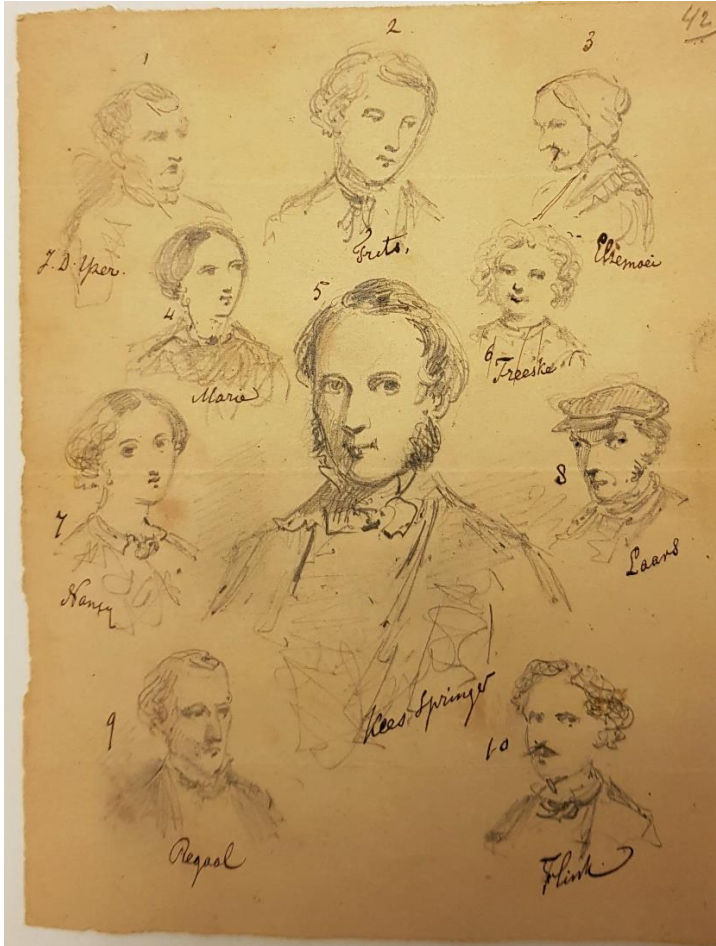 42
1
2
3
J. D. Yzer.
Frits,
Elzemoei
4
Marie
5
6
Freeske
7
Nansy
8
Laars
Kees Springer
9
Regaal
10
Flink.